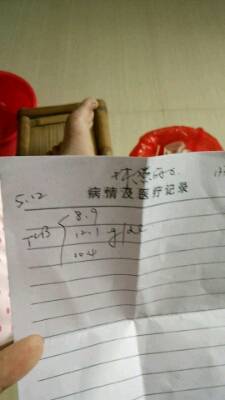 病情及医疗记录
5.12
8.9
TCB 12.1 g/dL
10.4